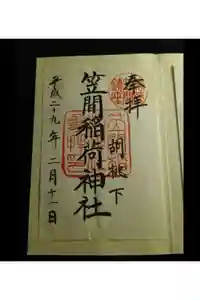 奉拝
胡桃下
笠間稲荷神社
平成二十九年二月十一日